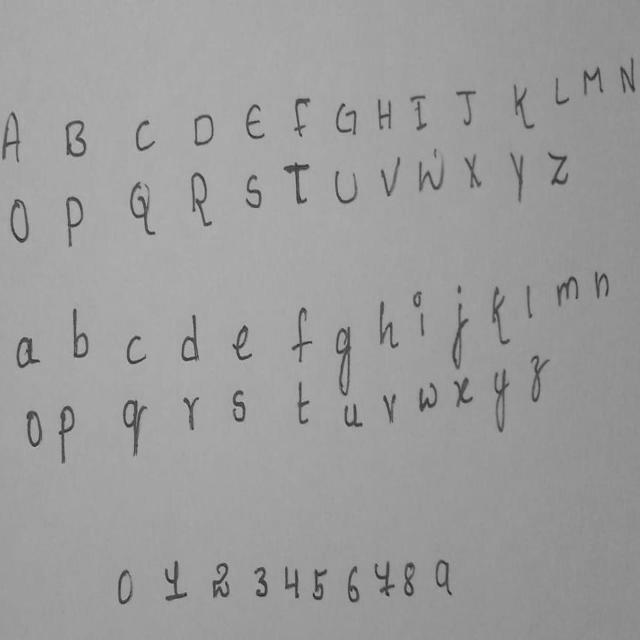 A B C D E F G H I J K L M N
O P Q R S T U V W X Y Z
a b c d e f g h i j k l m n
o p q r s t u v w x y z
0 1 2 3 4 5 6 7 8 9